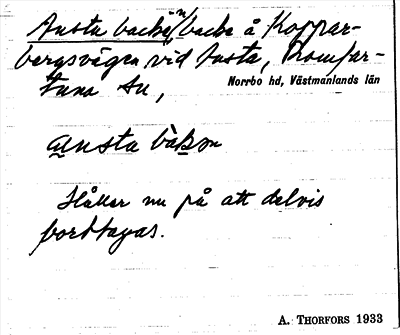 Ansta backe/n backe å Koppar-
bergsvägen vid Ansta, Romfar-
tuna sn,
Norrbo hd, Västmanlands län
Ansta
Håller nu på att delvis
borttagas.
A. THORFORS 1933